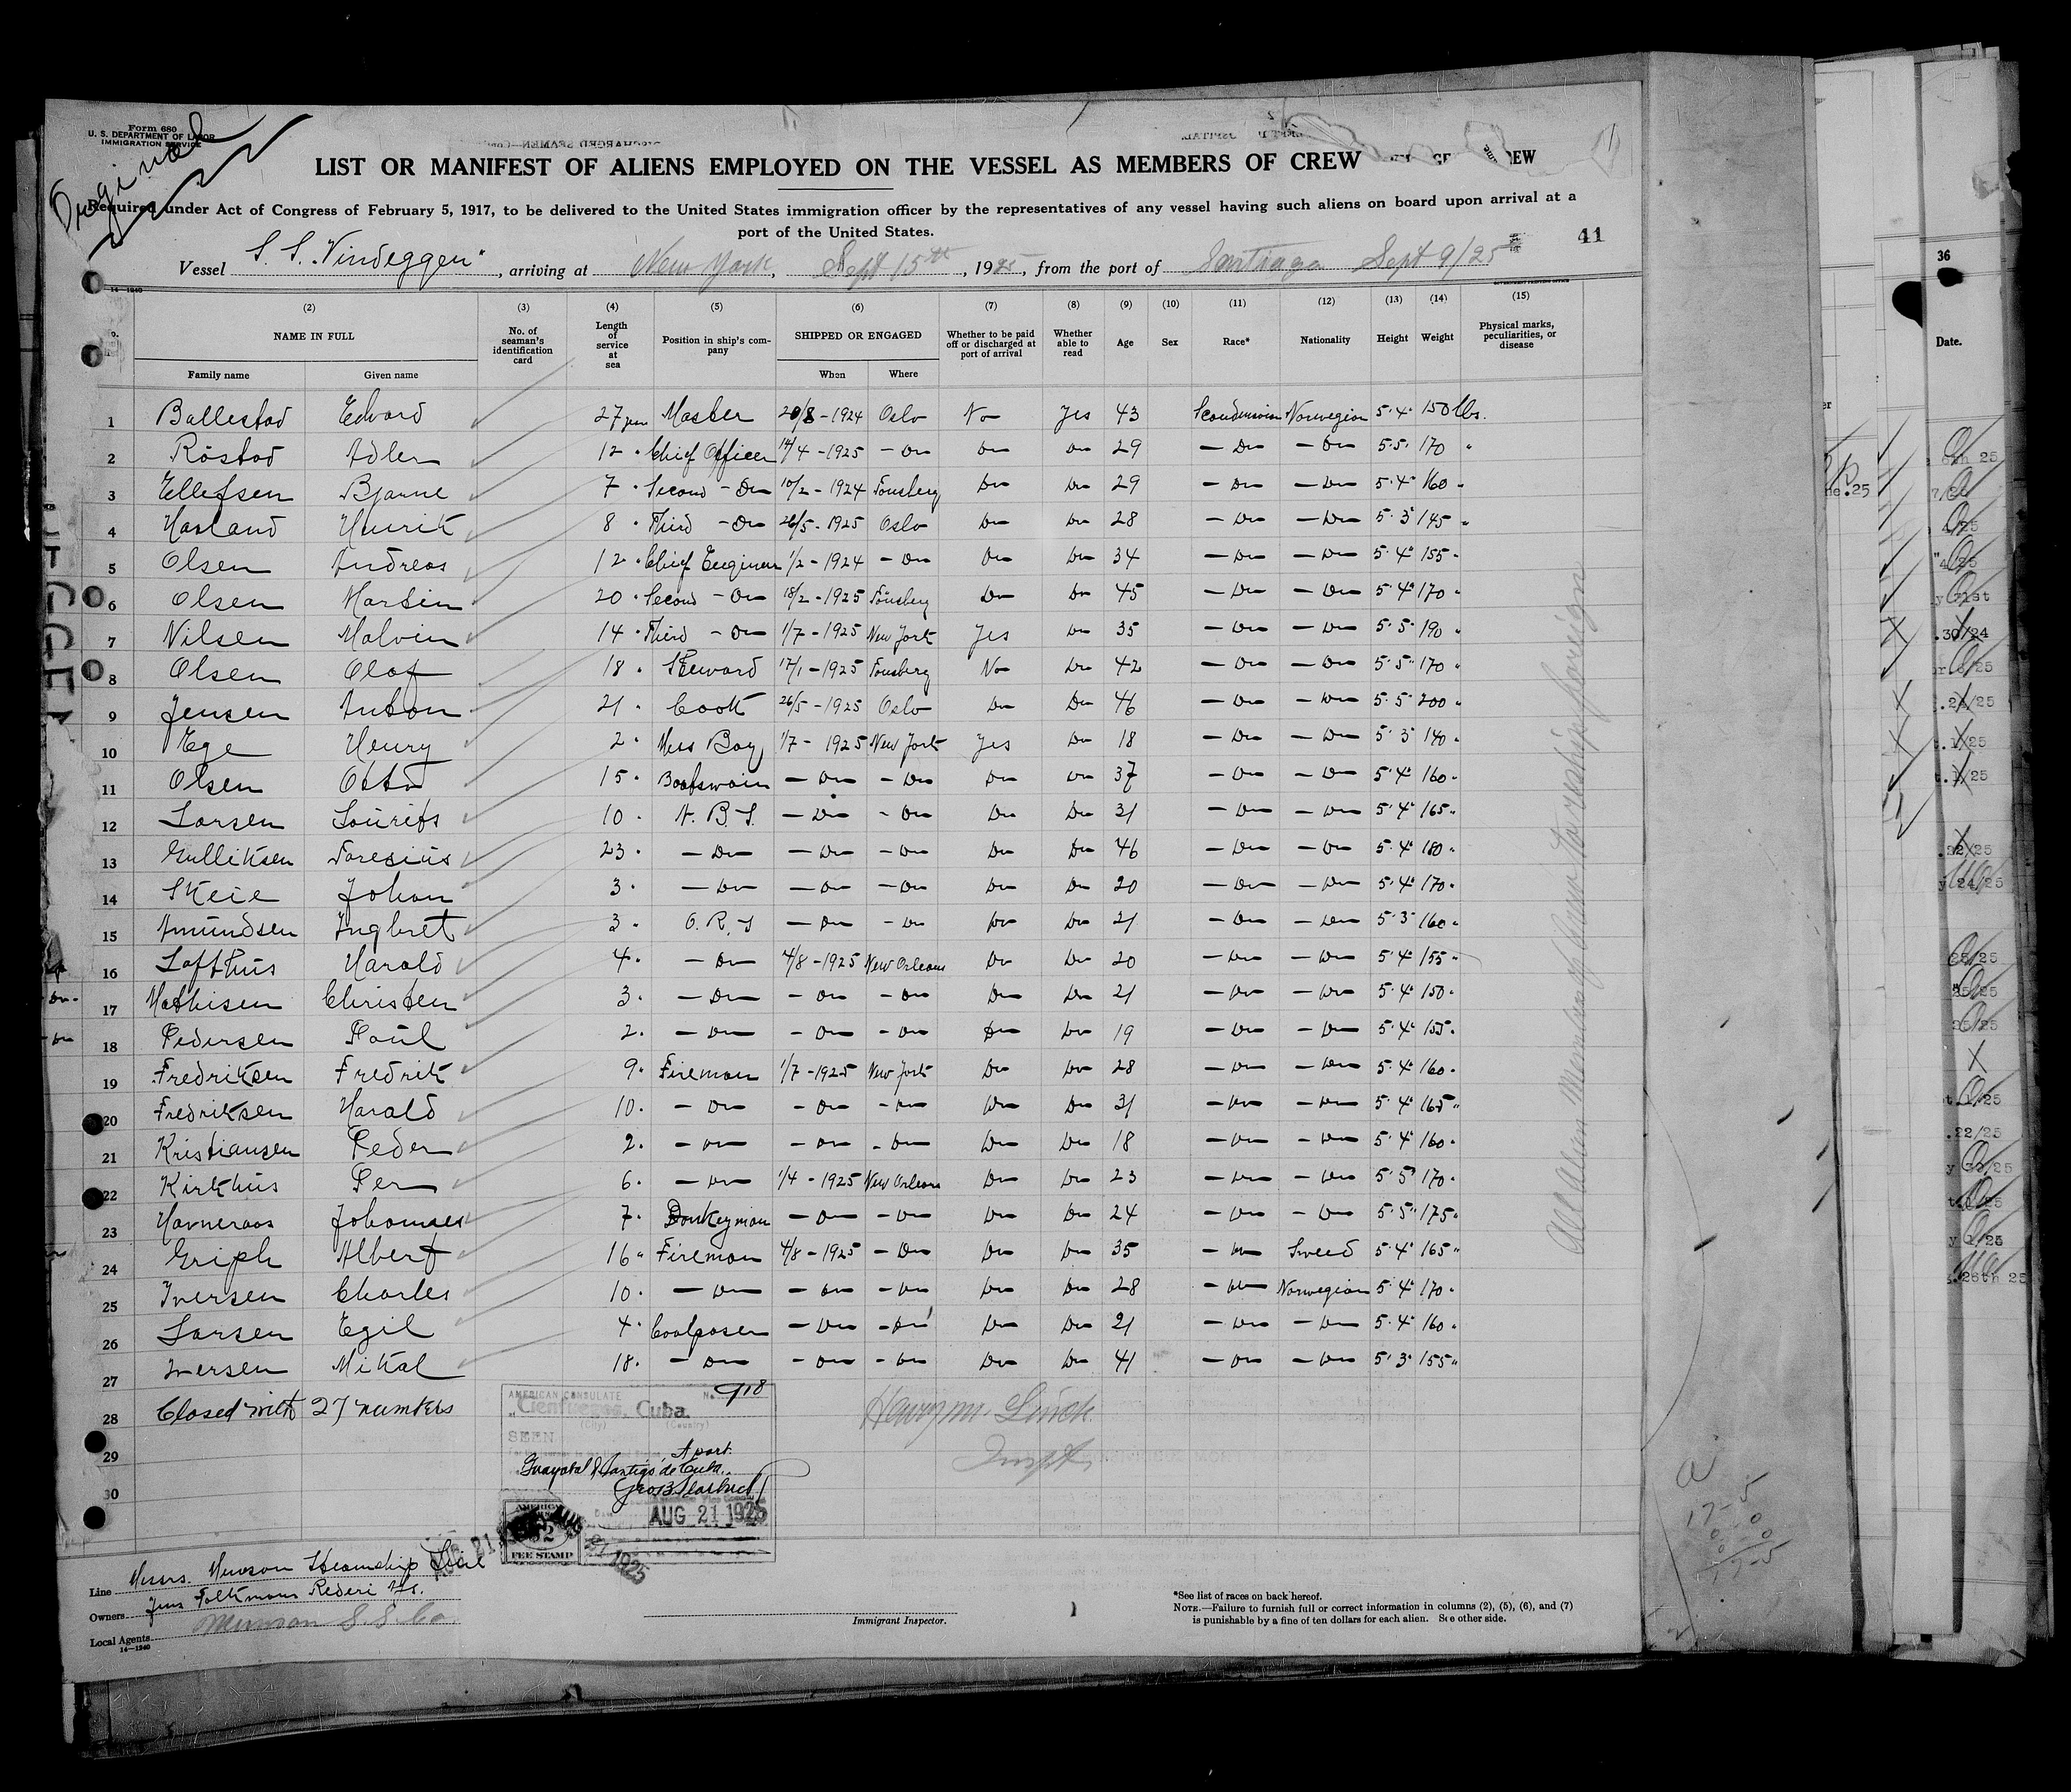 Form 680
U. S. DEPARTMENT OF LABOR
IMMIGRATION SERVICE
Original
LIST OR MANIFEST OF ALIENS EMPLOYED ON THE VESSEL AS MEMBERS OF CREW
Required under Act of Congress of February 5, 1917, to be delivered to the United States immigration officer by the representatives of any vessel having such aliens on board upon arrival at a
port of the United States.
41
Vessel S. S. "Vindeggen", arriving at New York, Sept 15th, 1925, from the port of Santiago Sept 9/25
(2) (3) (4) (5) (6) (7) (8) (9) (10) (11) (12) (13) (14) (15)
NAME IN FULL No. of seaman's identification card Length of service at sea Position in ship's company SHIPPED OR ENGAGED Whether to be paid off or discharged at port of arrival Whether able to read Age Sex Race* Nationality Height Weight Physical marks, peculiarities, or disease
Family name Given name When Where
1 Ballestad Edvard 27 years Master 20/8 - 1924 Oslo No Yes 43 Scandinavian Norwegian 5' 4" 150 lbs.
2 Röstad Adler 12 " Chief Officer 14/4 - 1925 - Do - Do Do 29 - Do - - Do - 5' 5" 170 "
3 Ellefsen Bjarne 7 " Second - Do 10/2 - 1924 Tonsberg Do Do 29 - Do - - Do - 5' 4" 160 "
4 Hasland Henrik 8 " Third - Do 26/5 - 1925 Oslo Do Do 28 - Do - - Do - 5' 3" 145 "
5 Olsen Andreas 12 " Chief Engineer 1/2 - 1924 - Do Do Do 34 - Do - - Do - 5' 4" 155 "
6 Olsen Martin 20 " Second - Do 18/2 - 1925 Tönsberg Do Do 45 - Do - - Do - 5' 4" 170 "
7 Nilsen Malvin 14 " Third - Do 1/7 - 1925 New York Yes Do 35 - Do - - Do - 5' 5" 190 "
8 Olsen Olaf 18 " Steward 17/1 - 1925 Tonsberg No Do 42 - Do - - Do - 5' 5" 170 "
9 Jensen Anton 21 " Cook 26/5 - 1925 Oslo Do Do 46 - Do - - Do - 5' 5" 200 "
10 Ege Henry 2 " Mess Boy 1/7 - 1925 New York Yes Do 18 - Do - - Do - 5' 3" 140 "
11 Olsen Otto 15 " Boatswain - Do - Do Do Do 37 - Do - - Do - 5' 4" 160 "
12 Larsen Lourits 10 " A. B. S. - Do - Do Do Do 31 - Do - - Do - 5' 4" 165 "
13 Gulliksen Toresius 23 " - Do - Do - Do Do Do 46 - Do - - Do - 5' 4" 180 "
14 Skeie Johan 3 " - Do - Do - Do Do Do 20 - Do - - Do - 5' 4" 170 "
15 Amundsen Ingbret 3 " O. R. S - Do - Do Do Do 21 - Do - - Do - 5' 3" 160 "
16 Lofthus Harald 4 " - Do 4/8 - 1925 New Orleans Do Do 20 - Do - - Do - 5' 4" 155 "
17 Mathisen Christen 3 " - Do - Do - Do Do Do 21 - Do - - Do - 5' 4" 150 "
18 Pedersen Poul 2 " - Do - Do - Do Do Do 19 - Do - - Do - 5' 4" 155 "
19 Fredriksen Fredrik 9 " Fireman 1/7 - 1925 New York Do Do 28 - Do - - Do - 5' 4" 160 "
20 Fredriksen Harald 10 " - Do - Do - Do Do Do 31 - Do - - Do - 5' 4" 165 "
21 Kristiansen Peder 2 " - Do - Do - Do Do Do 18 - Do - - Do - 5' 4" 160 "
22 Kirkhus Per 6 " - Do 1/4 - 1925 New Orleans Do Do 23 - Do - - Do - 5' 5" 170 "
23 Havneraas Johannes 7 " Donkeyman - Do - Do Do Do 24 - Do - - Do - 5' 5" 175 "
24 Griph Albert 16 " Fireman 4/8 - 1925 - Do Do Do 35 - Do - Sweed 5' 4" 165 "
25 Iversen Charles 10 " - Do - Do - Do Do Do 28 - Do - Norwegian 5' 4" 170 "
26 Larsen Egil 4 " Coalpaser - Do - Do Do Do 21 - Do - - Do - 5' 4" 160 "
27 Iversen Mikal 18 " - Do - Do - Do Do Do 41 - Do - - Do - 5' 3" 155 "
28 Closed with 27 numbers
29
30
All alien members of crew
AMERICAN CONSULATE No. 918
Cienfuegos, Cuba.
(City) (Country)
SEEN
Guayabal & Santiago de Cuba.
AUG 21 1925
AMERICAN
FEE STAMP
AUG 21 1925
Line Messrs. Munson Steamship Line
Owners
Local Agents Munson S. S. Co
14—1240
Immigrant Inspector.
*See list of races on back hereof.
NOTE.—Failure to furnish full or correct information in columns (2), (5), (6), and (7)
is punishable by a fine of ten dollars for each alien. See other side.
36
Date.